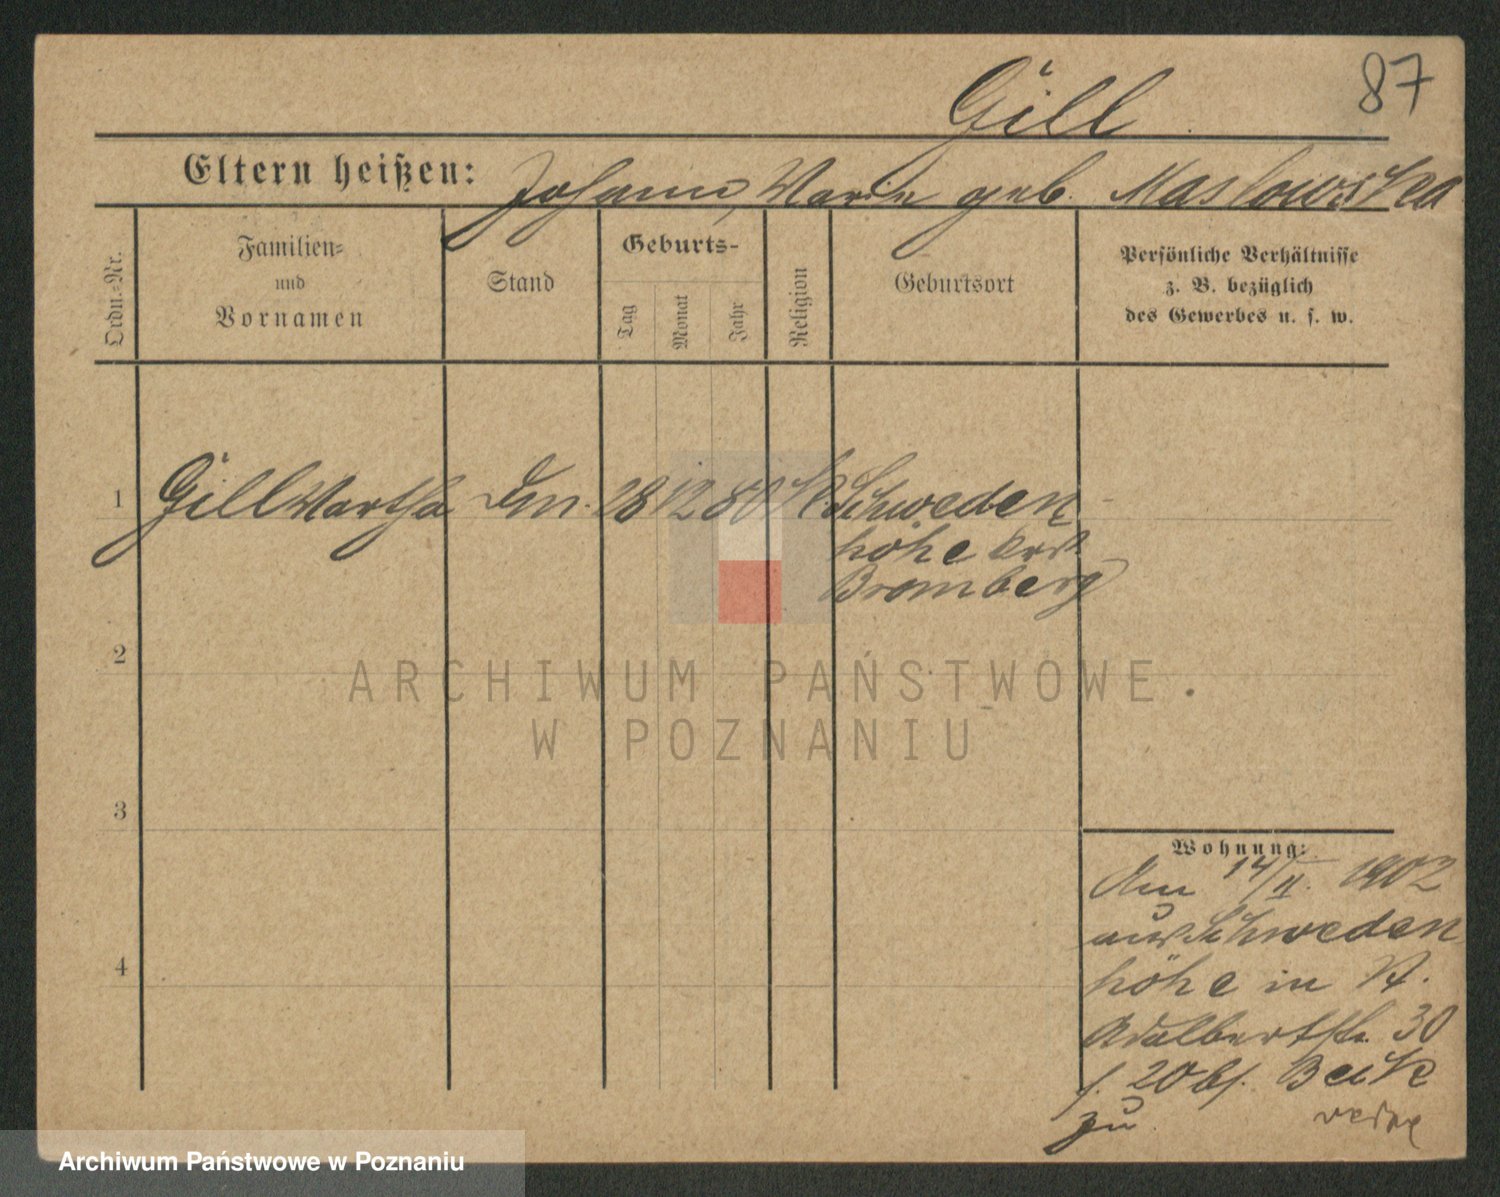 87
Gill
Eltern heißen: Johann, Marie geb. Maslowska
Ordn.-Nr.
Familien-
und
Vornamen
Stand
Geburts-
Tag
Monat
Jahr
Religion
Geburtsort
Persönliche Verhältnisse
z. B. bezüglich
des Gewerbes u. s. w.
1 Gill Martha 28 12 80 K. Schweden
höhe
Bromberg
ARCHIWUM PAŃSTWOWE
W POZNANIU
2
3
4
Wohnung:
Am 14/II. 1902
aus Schweden
höhe in
Adalbertstr. 30
zu
Archiwum Państwowe w Poznaniu